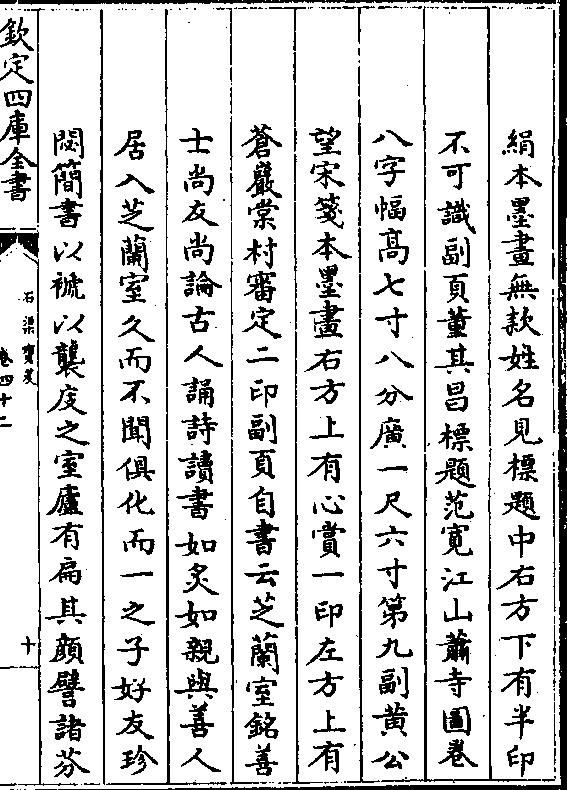 絹本墨畫無款姓名見標題中右方下有半印
不可識副頁董其昌標題范寛江山蕭寺圖卷
八字幅髙七寸八分廣一尺六寸第九副黄公
望宋箋本墨畫右方上有心賞一印左方上有
蒼巖棠村審定二印副頁自書云芝蘭室銘善
士尚友尚論古人誦詩讀書如炙如親與善人
居入芝蘭室久而不聞俱化而一之子好友珍
閟簡書以褫以襲庋之室廬有扁其顔譬諸芬
欽定四庫全書
石渠寳笈
卷四十二
十